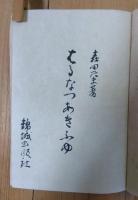 森田たま著
はるなつあきふゆ
錦城出版社